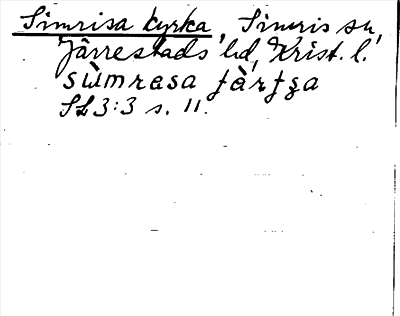 Simrisa kyrka, Simris sn,
Järrestads hd, Krist. l.
sùmrasa ʃàrʃʒa
SL 3:3 s. 11.